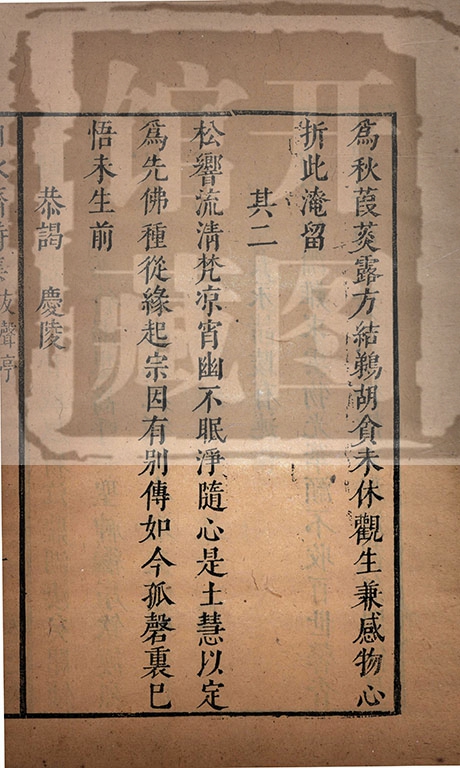 為秋葭菼露方結鵜胡貪未休觀生兼感物心
折此淹留
其二
松響流清梵凉宵幽不眠淨隨心是土慧以定
為先佛種從緣起宗因有別傳如今孤磬裏已
悟未生前
恭謁 慶陵
开图馆藏